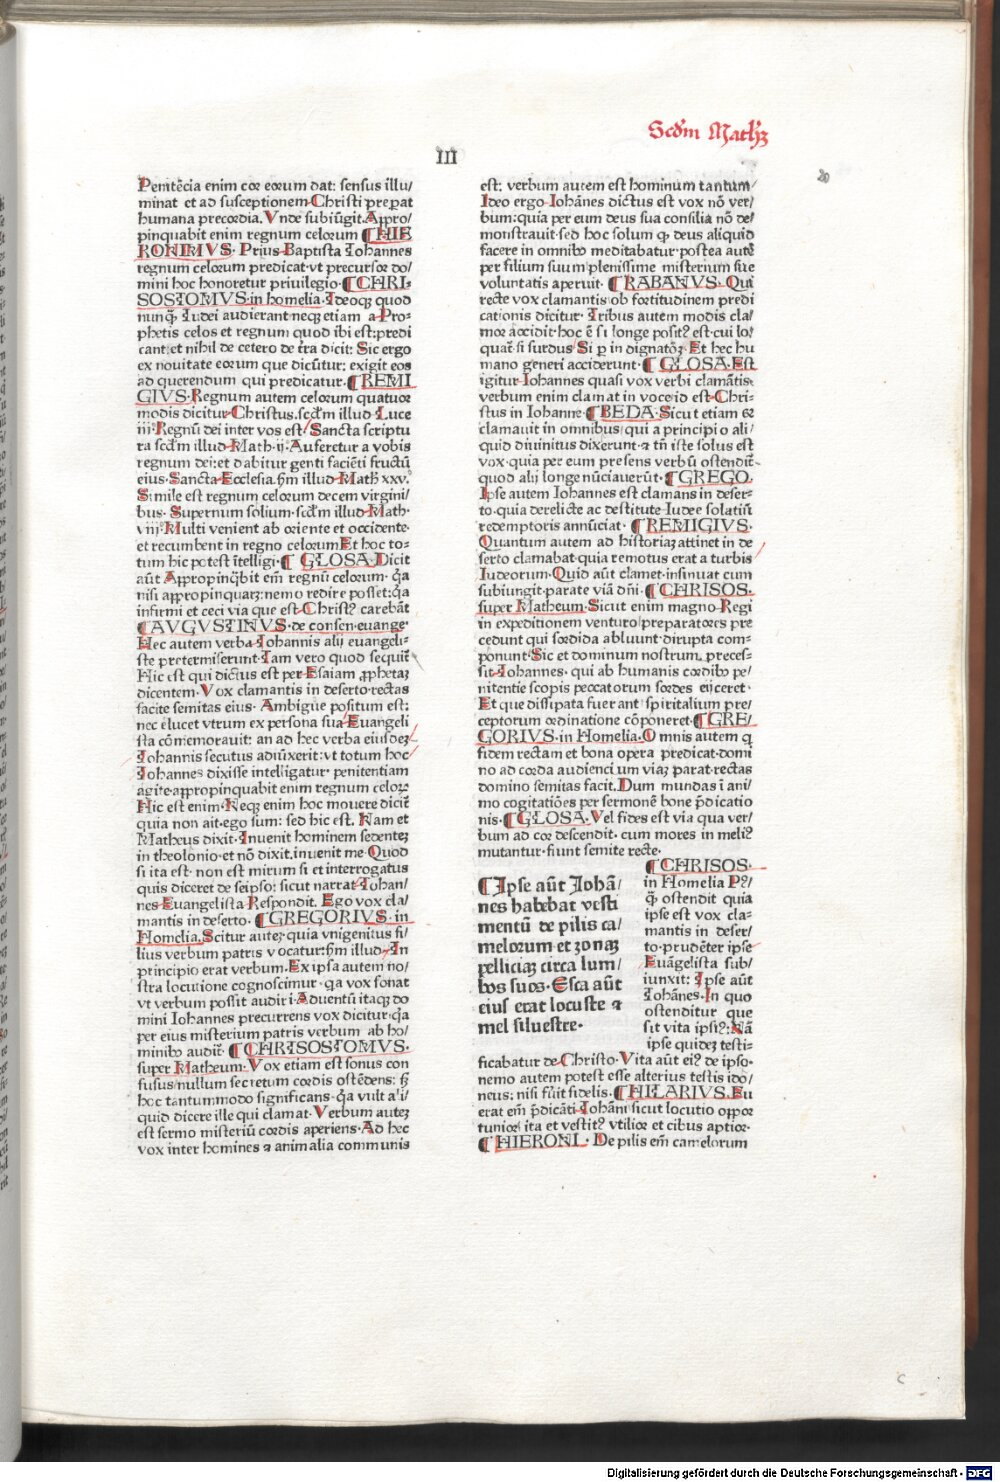 Scďm Math̄ꝫ
III
20
Penitēcia enim cor eorum dat: sensus illu/
minat et ad susceptionem Christi preparat
humana precordia. Vnde subiūgit. Appro/
pinquabit enim regnum celorum ¶ HIE
RONIMVS. Prius Baptista Iohannes
regnum celorum predicat vt precursor do/
mini hoc honoretur priuilegio. ¶ CHRI-
SOSTOMVS. in homelia. Ideoqꝫ quod
nunq̄ʒ Iudei audierant neqꝫ etiam a Pro-
phetis celos et regnum quod ibi est: predi
cant. et nihil de cetero de t̄ra dicit: Sic ergo
ex nouitate eorum que dicūtur: exigit eos
ad querendum qui predicatur. ¶ REMI
GIVS. Regnum autem celorum quatuor
modis dicitur Christus. scďm illud Luce
iii. Regnū dei inter vos est/ Sancta scriptu
ra scďm illud Math. ij. Auferetur a vobis
regnum dei: et dabitur genti faciēti fructū
eius. Sancta Ecclesia. ẜm illud Math xxv.
Simile est regnum celorum decem virgini/
bus. Supernum solium. scďm illud Math.
viij Multi venient ab oriente et occidente.
et recumbent in regno celorum Et hoc to-
tum hic potest ītelligi. ¶ GLOSA. Dicit
aūt Appropinq̄bit em̄ regnū celorum. q̄a
nisi appropinquarꝫ: nemo redire posset: q̄a
infirmi et ceci via que est Christꝰ carebāt
¶ AVGVSTINVS. de consen. euange.
Hec autem verba Iohannis alij euangeli-
ste pretermiserunt. Iam vero quod sequit̄
Hic est qui dictus est per Esaiam ꝓphetaꝫ
dicentem. Vox clamantis in deserto. rectas
facite semitas eius. Ambigue positum est:
nec elucet vtrum ex persona sua Euangeli
sta cōmemorauit: an ad hec verba eiusdeꝫ
Iohannis secutus adiūxerit: vt totum hoc
Iohannes dixisse intelligatur. penitentiam
agite. appropinquabit enim regnum celoꝝ
Hic est enim. Neqꝫ enim hoc mouere dicit̄
quia non ait. ego sum: sed hic est. Nam et
Matheus dixit. Inuenit hominem sedenteꝫ
in theolonio. et nō dixit. inuenit me. Quod
si ita est. non est mirum si et interrogatus
quis diceret de seipso: sicut narrat Iohan/
nes Euangelista Respondit. Ego vox cla/
mantis in deserto. ¶ GREGORIVS. in
Homelia. Scitur auteꝫ quia vnigenitus fi/
lius verbum patris vocatur: ẜm illud. In
principio erat verbum. Ex ipsa autem no/
stra locutione cognoscimur. q̄a vox sonat
vt verbum possit audiri. Aduentū itaqꝫ do
mini Iohannes precurrens vox dicitur. q̄a
per eius misterium patris verbum ab ho/
minibꝰ audit̄. ¶ CHRISOSTOMVS.
super Matheum. Vox etiam est sonus con
fusus/ nullum secretum cordis ostēdens: sȝ
hoc tantummodo significans. q̄a vult ali/
quid dicere ille qui clamat. Verbum auteꝫ
est sermo misteriū cordis aperiens. Ad hec
vox inter homines ⁊ animalia communis
est: verbum autem est hominum tantum/
Ideo ergo Iohānes dictus est vox nō ver/
bum: quia per eum deus sua consilia nō de/
monstrauit. sed hoc solum qƺ deus aliquid
facere in omnibꝰ meditabatur. postea autē
per filium suum plenissime misterium sue
voluntatis aperuit. ¶ RABANVS. Qui
recte vox clamantis ob fortitudinem predi
cationis dicitur. Tribus autem modis cla/
mor accidit. hoc ē si longe positꝰ est. cui lo/
quat̄. si surdus/ Si ꝑ indignatōƺ. Et hec hu
mano generi acciderunt. ¶ GLOSA. Est
igitur Iohannes quasi vox verbi clamātis.
verbum enim clamat in voce. id est Chri-
stus in Iohanne. ¶ BEDA. Sicut etiam ex
clamauit in omnibus/ qui a principio ali/
quid diuinitus dixerunt. ⁊ tn̄ iste solus est
vox. quia per eum presens verbū ostendit̄-
quod alij longe nūciauerūt. ¶ GREGO.
Ipse autem Iohannes est clamans in deser-
to. quia derelicte ac destitute Iudee solatiū
redemptoris annūciat. ¶ REMIGIVS.
Quantum autem ad historiaꝫ attinet in de
serto clamabat. quia remotus erat a turbis
Iudeorum. Quid aūt clamet. insinuat cum
subiungit. parate viā dn̄i. ¶ CHRISOS.
super Matheum. Sicut enim magno Regi
in expeditionem venturo/ preparatores pre
cedunt qui sordida abluunt. dirupta com-
ponunt. Sic et dominum nostrum. preces-
sit. Iohannes. qui ab humanis cordibꝰ pe/
nitentie scopis peccatorum sordes eijceret.
Et que dissipata fuerant spiritalium pre/
ceptorum ordinatione cōponeret. ¶ GRE/
GORIVS. in Homelia. Omnis autem q
fidem rectam et bona opera predicat. domi
no ad corda audiencium viaꝫ parat. rectas
domino semitas facit. Dum mundas ī ani/
mo cogitatiōes per sermonē bone p̄dicatio
nis. ¶ GLOSA. Vel fides est via qua ver/
bum ad cor descendit. cum mores in meliꝰ
mutantur. fiunt semite recte.
¶ Ipse aūt Johā/
nes habebat vesti
mentū de pilis ca/
melorum et zonaꝫ
pelliciaꝫ circa lum/
bos suos. Esca aūt
eius erat locuste ⁊
mel siluestre.
¶ CHRISOS.
in Homelia Pꝰ/
qƺ ostendit quia
ipse est vox cla-
mantis in deser/
to. prudēter ipse
Euāgelista sub/
iunxit: Ipse aūt
Iohānes. In quo
ostenditur que
sit vita ipsiꝰ: Nā
ipse quideꝫ testi-
ficabatur de Christo. Vita aūt eiꝰ de ipso.
nemo autem potest esse alterius testis ido/
neus: nisi fūit fidelis. ¶ HILARIVS. Eu
erat em̄ p̄dicāti Iohāni sicut locutio oppor
tunior ita et vestitꝰ vtilior et cibus aptior.
¶ HIERONI. De pilis em̄ camelorum
c
Digitalisierung gefördert durch die Deutsche Forschungsgemeinschaft - DFG